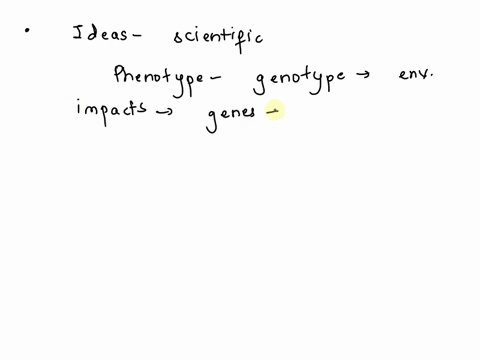 • Ideas - scientific
Phenotype - genotype → env.
impacts → genes -